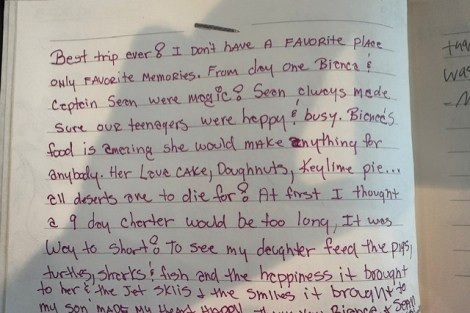 Best trip ever! I Don't have A FAVORITE place
only FAVOrite Memories. From day one Bianca &
Captain Sean were magic! Sean always made
sure our teenagers were happy & busy. Bianca's
food is amazing she would make anything for
anybody. Her Love cake, Doughnuts, Keylime pie...
all deserts are to die for! At first I thought
a 9 day charter would be too long, It was
Way to short! To see my daughter feed the
turtles, sharks & fish and the happiness it brought
to her & the Jet skiis & the smiles it brought to
my son MADE My Heart Happy
& Sean
was